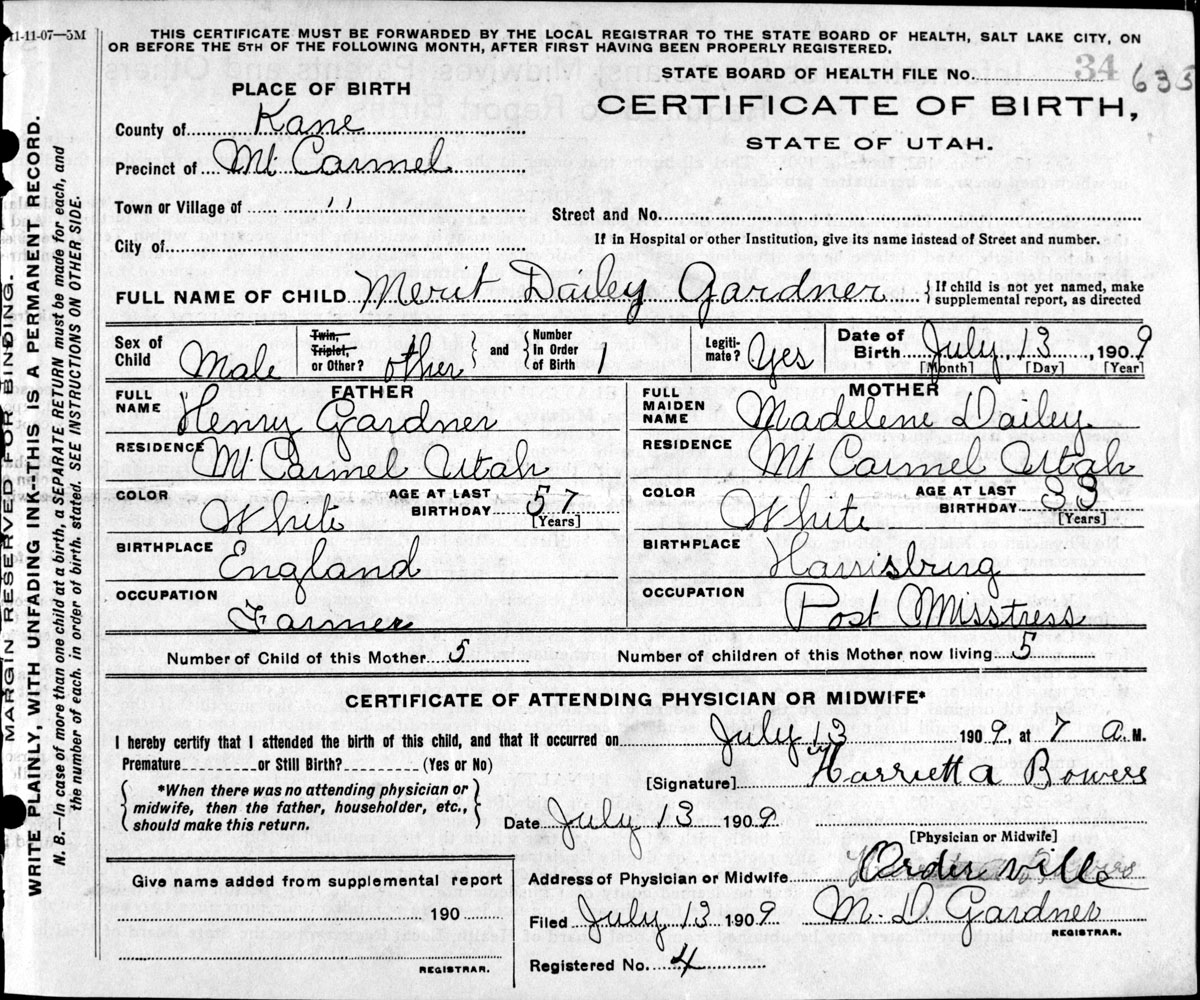 11-11-07—5M
THIS CERTIFICATE MUST BE FORWARDED BY THE LOCAL REGISTRAR TO THE STATE BOARD OF HEALTH, SALT LAKE CITY, ON
OR BEFORE THE 5TH OF THE FOLLOWING MONTH, AFTER FIRST HAVING BEEN PROPERLY REGISTERED.
STATE BOARD OF HEALTH FILE No. 34 633
PLACE OF BIRTH
CERTIFICATE OF BIRTH,
STATE OF UTAH.
County of Kane
Precinct of Mt Carmel
Town or Village of ''
Street and No.
City of
If in Hospital or other Institution, give its name instead of Street and number.
FULL NAME OF CHILD Merit Dailey Gardner { If child is not yet named, make supplemental report, as directed
Sex of Child Male Twin, Triplet, or Other? other } and { Number In Order of Birth 1 Legiti-mate? Yes Date of Birth July 13, 1909
[Month] [Day] [Year]
FATHER
FULL NAME Henry Gardner
RESIDENCE Mt Carmel Utah
COLOR White AGE AT LAST BIRTHDAY 57
[Years]
BIRTHPLACE England
OCCUPATION Farmer
MOTHER
FULL MAIDEN NAME Madelene Dailey
RESIDENCE Mt Carmel Utah
COLOR White AGE AT LAST BIRTHDAY 33
[Years]
BIRTHPLACE Harrisbring
OCCUPATION Post Misstress
Number of Child of this Mother 5
Number of children of this Mother now living 5
CERTIFICATE OF ATTENDING PHYSICIAN OR MIDWIFE*
I hereby certify that I attended the birth of this child, and that it occurred on July 13 1909, at 7 A.M.
Premature or Still Birth? (Yes or No)
{ *When there was no attending physician or
midwife, then the father, householder, etc.,
should make this return. }
[Signature] Harrietta Bowers
Date July 13 1909
[Physician or Midwife]
Address of Physician or Midwife Orderville
Filed July 13 1909 M. D. Gardner
REGISTRAR.
Registered No. 4
Give name added from supplemental report
190
REGISTRAR.
MARGIN RESERVED FOR BINDING.
WRITE PLAINLY, WITH UNFADING INK—THIS IS A PERMANENT RECORD.
N. B.—In case of more than one child at a birth, a SEPARATE RETURN must be made for each, and
the number of each, in order of birth, stated. SEE INSTRUCTIONS ON OTHER SIDE.